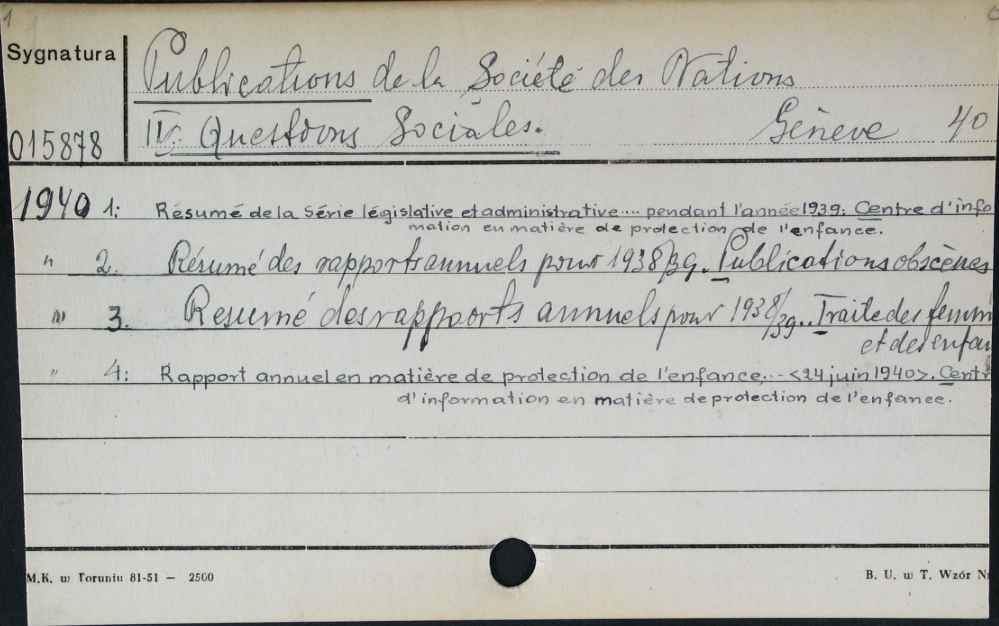 1
Sygnatura
Publications de la Société des Nations
015878
IV. Questions Sociales. Genève 40
1940 1: Résumé de la Série législative et administrative... pendant l'année 1939: Centre d'info
mation en matière de protection de l'enfance.
" 2. Résumé des rapports annuels pour 1938/39. Publications obscènes
" 3. Resumé des rapports annuels pour 1938/39.. Traite des femm
et des enfan
" 4: Rapport annuel en matière de protection de l'enfance... <24 juin 1940>. Centr
d'information en matière de protection de l'enfance.
M.K. w Toruniu 81-51 — 2500
B. U. w T. Wzór N